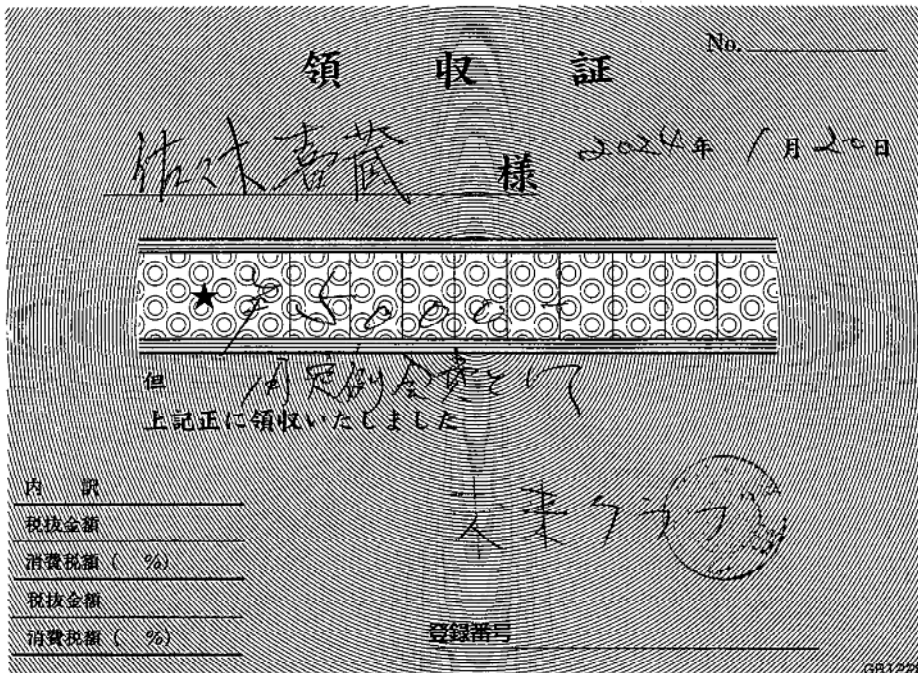 No.
領収証
佐々木喜蔵 様 2024年1月20日
★ ¥5,000-
但 月定例会費として
上記正に領収いたしました
内訳
税抜金額
消費税額(　%)
税抜金額
消費税額(　%)
クラブ
登録番号